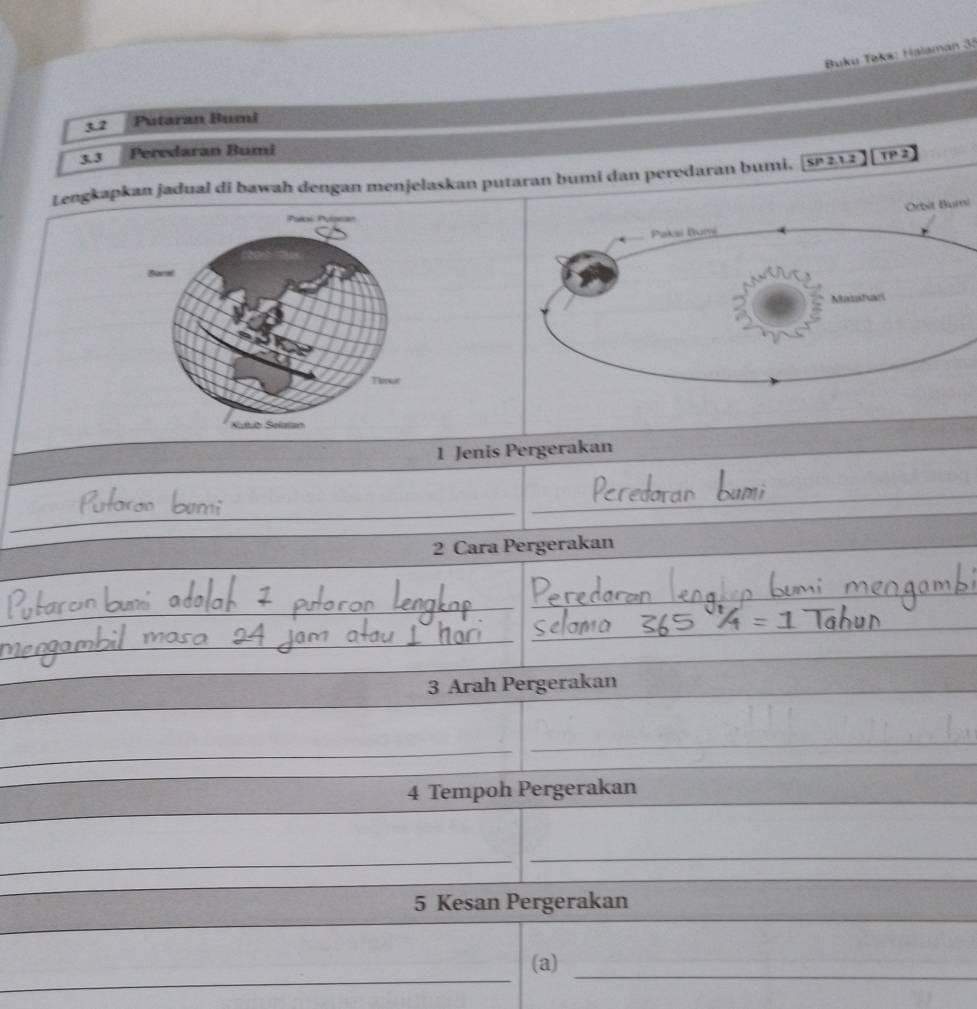 Buku Teks: Halaman 35
3.2 Putaran Bumi
3.3 Peredaran Bumi
Lengkapkan jadual di bawah dengan menjelaskan putaran bumi dan peredaran bumi. SP 2.1.2 TP 2
Paksi Putaran
Barat
Timur
Kutub Selatan
Orbit Bumi
Paksi Bumi
Matahari
1 Jenis Pergerakan
Putaran bumi
Peredaran bumi
2 Cara Pergerakan
Putaran bumi adalah 1 putaran lengkap
mengambil masa 24 jam atau 1 hari
Peredaran lengkap bumi mengambi
selama 365 1/4 = 1 Tahun
3 Arah Pergerakan
4 Tempoh Pergerakan
5 Kesan Pergerakan
(a)